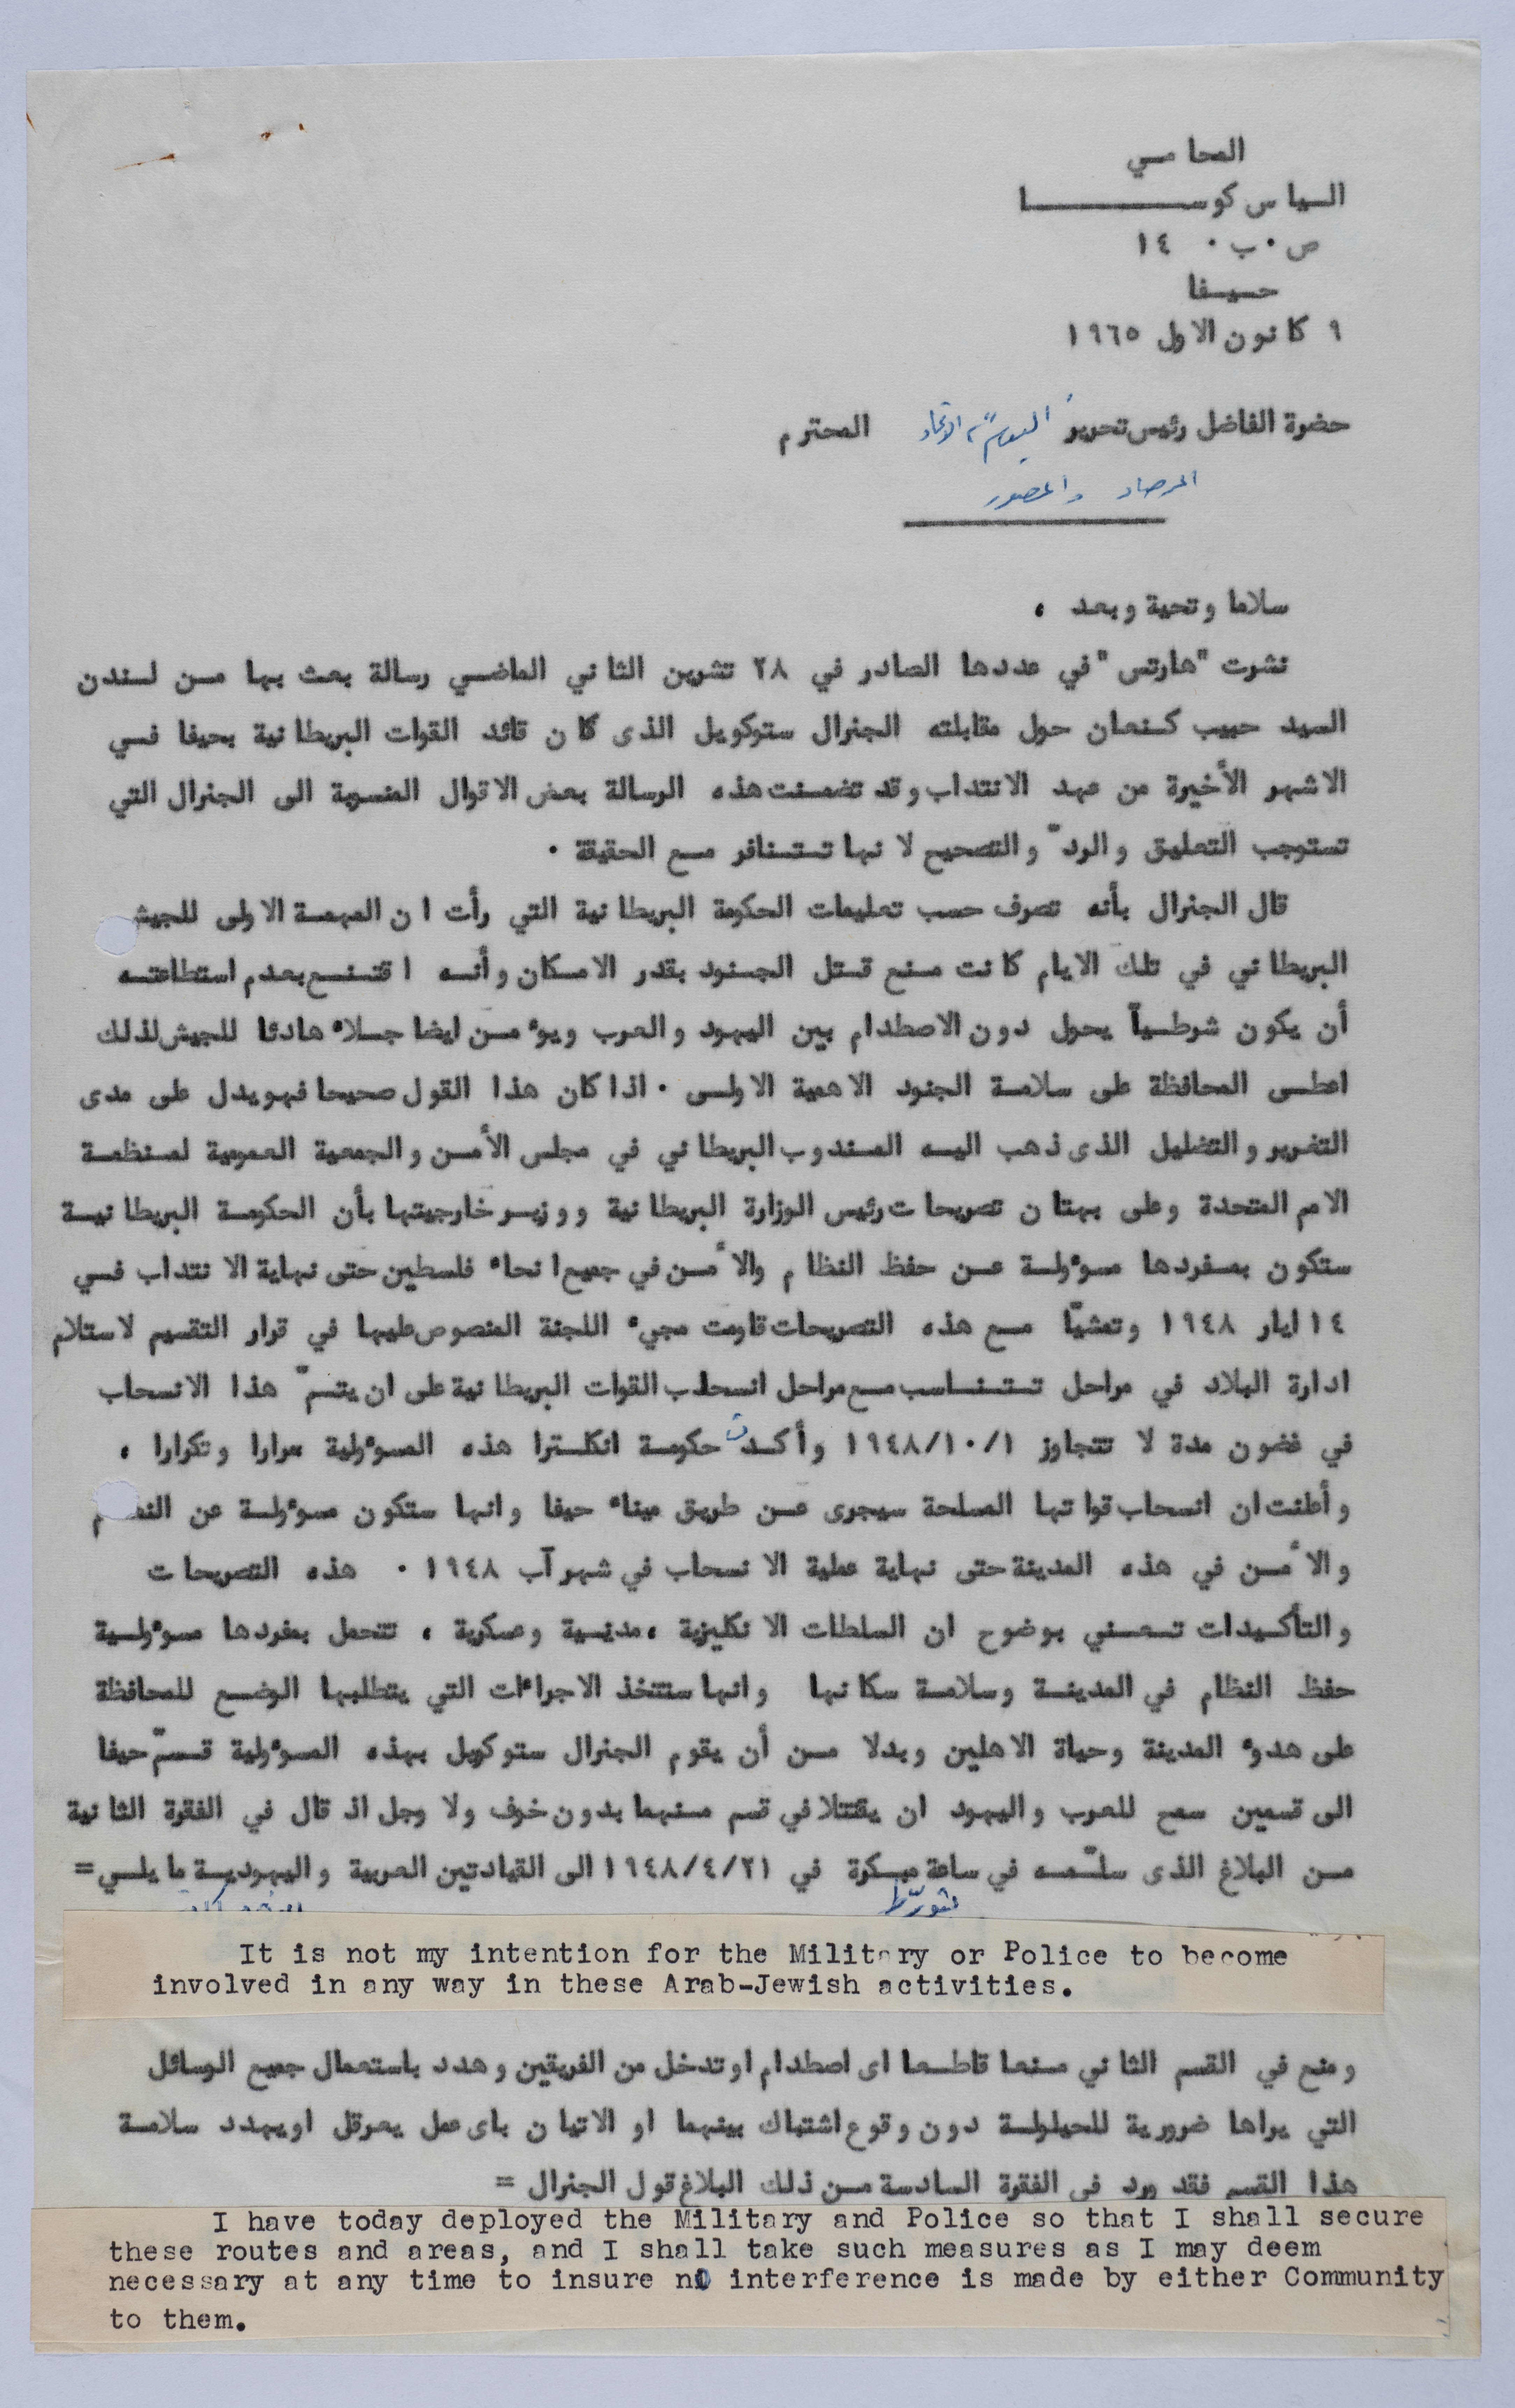 المحامي
الياس كوسا
ص.ب. ١٤
حيفا
٩ كانون الاول ١٩٦٥
حضرة الفاضل رئيس تحرير اليوم، الاتحاد المحترم
المرصاد والمصور
سلاما وتحية وبعد،
نشرت "هارتس" في عددها الصادر في ٢٨ تشرين الثاني الماضي رسالة بعث بها من لندن
السيد حبيب كنعان حول مقابلته الجنرال ستوكويل الذى كان قائد القوات البريطانية بحيفا في
الاشهر الأخيرة من عهد الانتداب وقد تضمنت هذه الرسالة بعض الاقوال المنسوبة الى الجنرال التي
تستوجب التعليق والردّ والتصحيح لانها تتنافر مع الحقيقة.
قال الجنرال بأنه تصرف حسب تعليمات الحكومة البريطانية التي رأت ان المهمة الاولى للجيش
البريطاني في تلك الايام كانت منع قتل الجنود بقدر الامكان وأنه اقتنع بعدم استطاعته
أن يكون شرطياً يحول دون الاصطدام بين اليهود والعرب ويوءمن ايضا جلاء هادئا للجيش لذلك
اعطى المحافظة على سلامة الجنود الاهمية الاولى. اذا كان هذا القول صحيحا فهو يدل على مدى
التغرير والتضليل الذى ذهب اليه المندوب البريطاني في مجلس الأمن والجمعية العمومية لمنظمة
الامم المتحدة وعلى بهتان تصريحات رئيس الوزارة البريطانية ووزير خارجيتها بأن الحكومة البريطانية
ستكون بمفردها مسوءولة عن حفظ النظام والأمن في جميع انحاء فلسطين حتى نهاية الانتداب في
١٤ ايار ١٩٤٨ وتمشيّا مع هذه التصريحات قاومت مجيء اللجنة المنصوص عليها في قرار التقسيم لاستلام
ادارة البلاد في مراحل تتناسب مع مراحل انسحاب القوات البريطانية على ان يتمّ هذا الانسحاب
في غضون مدة لا تتجاوز ١٩٤٨/١٠/١ وأكدت حكومة انكلترا هذه المسوءولية مرارا وتكرارا،
وأعلنت ان انسحاب قواتها المسلحة سيجرى عن طريق ميناء حيفا وانها ستكون مسوءولة عن النظام
والأمن في هذه المدينة حتى نهاية عملية الانسحاب في شهر آب ١٩٤٨. هذه التصريحات
والتأكيدات تعني بوضوح ان السلطات الانكليزية، مدنية وعسكرية، تتحمل بمفردها مسوءولية
حفظ النظام في المدينة وسلامة سكانها وانها ستتخذ الاجراءات التي يتطلبها الوضع للمحافظة
على هدوء المدينة وحياة الاهلين وبدلا من أن يقوم الجنرال ستوكويل بهذه المسوءولية قسمّ حيفا
الى قسمين سمح للعرب واليهود ان يقتتلا في قسم منهما بدون خوف ولا وجل اذ قال في الفقرة الثانية
من البلاغ الذى سلّمه في ساعة مبكرة في ١٩٤٨/٤/٢١ الى القيادتين العربية واليهودية ما يلي=
تتورّط
It is not my intention for the Military or Police to become
involved in any way in these Arab-Jewish activities.
ومنع في القسم الثاني منعا قاطعا اى اصطدام او تدخل من الفريقين وهدد باستعمال جميع الوسائل
التي يراها ضرورية للحيلولة دون وقوع اشتباك بينهما او الاتيان باى عمل يعرقل او يهدد سلامة
هذا القسم فقد ورد في الفقرة السادسة من ذلك البلاغ قول الجنرال =
I have today deployed the Military and Police so that I shall secure
these routes and areas, and I shall take such measures as I may deem
necessary at any time to insure no interference is made by either Community
to them.